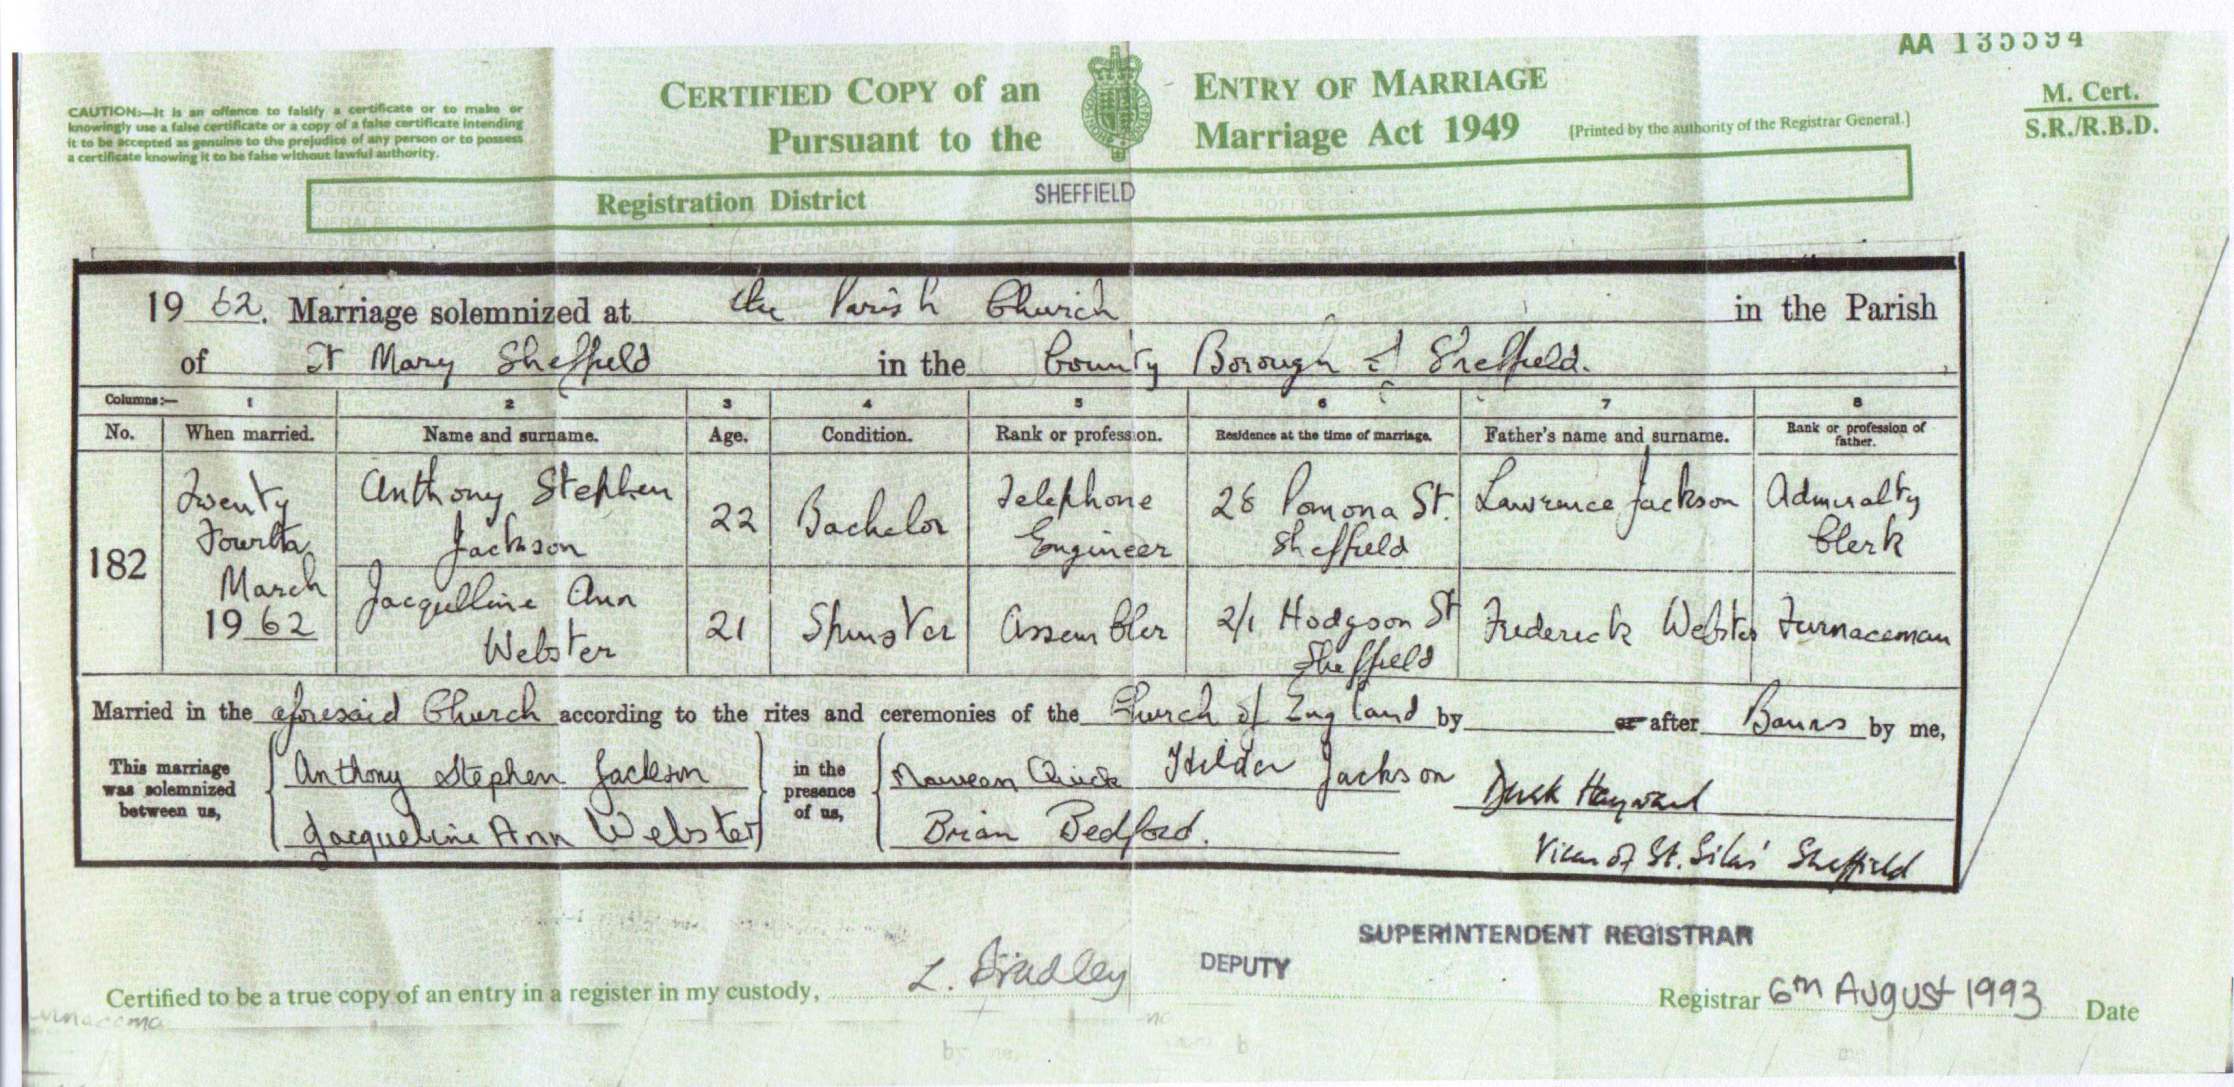 AA 135594
CAUTION:—It is an offence to falsify a certificate or to make or
knowingly use a false certificate or a copy of a false certificate intending
it to be accepted as genuine to the prejudice of any person or to possess
a certificate knowing it to be false without lawful authority.
CERTIFIED COPY of an ENTRY OF MARRIAGE
Pursuant to the Marriage Act 1949
[Printed by the authority of the Registrar General.]
M. Cert.
S.R./R.B.D.
Registration District SHEFFIELD
1962. Marriage solemnized at the Parish Church in the Parish
of St Mary Sheffield in the County Borough of Sheffield.
Columns:— 1 2 3 4 5 6 7 8
No. When married. Name and surname. Age. Condition. Rank or profession. Residence at the time of marriage. Father's name and surname. Rank or profession of father.
182
Twenty
Fourth
March
1962
Anthony Stephen
Jackson
22
Bachelor
Telephone
Engineer
28 Pomona St.
Sheffield
Lawrence Jackson
Admiralty
Clerk
Jacqueline Ann
Webster
21
Spinster
Assembler
2/1 Hodgson St
Sheffield
Frederick Webster
Furnaceman
Married in the aforesaid Church according to the rites and ceremonies of the Church of England by or after Banns by me,
This marriage
was solemnized
between us,
Anthony Stephen Jackson
Jacqueline Ann Webster
in the
presence
of us,
Maureen Quick Hilda Jackson
Brian Bedford.
Derek Hayward
Vicar of St. Silas' Sheffield
SUPERINTENDENT REGISTRAR
DEPUTY
Certified to be a true copy of an entry in a register in my custody, L. Bradley Registrar 6th August 1993 Date